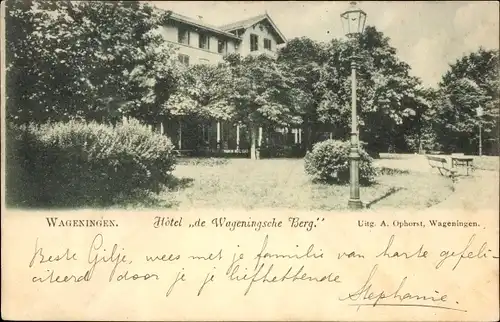 WAGENINGEN.
Hôtel „de Wageningsche Berg."
Uitg. A. Ophorst, Wageningen.
Beste Gilje, wees met je familie van harte gefeli-
citeerd door je je liefhettende
Stephanie.